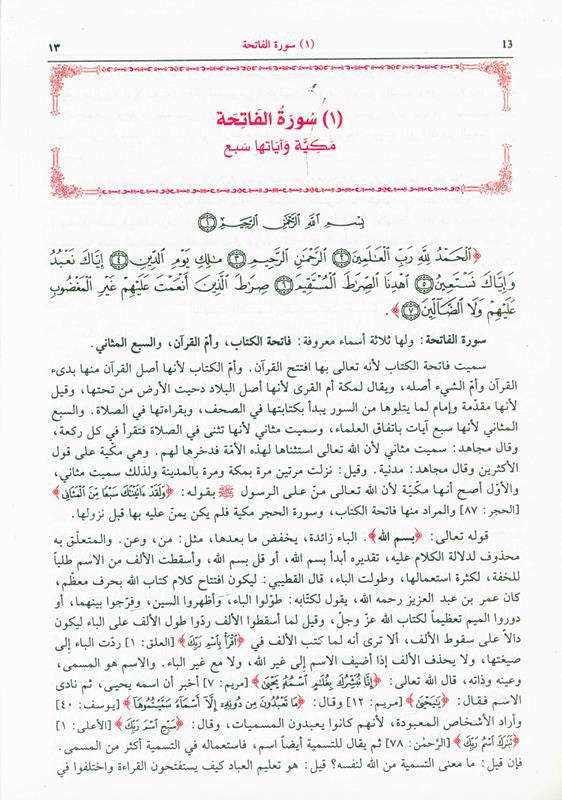 13 (١) سورة الفاتحة ١٣
(١) سُورَةُ الفَاتِحَة
مَكيَّة وَآيَاتها سَبع
بِسْمِ اللَّهِ الرَّحْمَٰنِ الرَّحِيمِ ١
﴿الْحَمْدُ لِلَّهِ رَبِّ الْعَالَمِينَ ٢ الرَّحْمَٰنِ الرَّحِيمِ ٣ مَالِكِ يَوْمِ الدِّينِ ٤ إِيَّاكَ نَعْبُدُ
وَإِيَّاكَ نَسْتَعِينُ ٥ اهْدِنَا الصِّرَاطَ الْمُسْتَقِيمَ ٦ صِرَاطَ الَّذِينَ أَنْعَمْتَ عَلَيْهِمْ غَيْرِ الْمَغْضُوبِ
عَلَيْهِمْ وَلَا الضَّالِّينَ ٧﴾.
سورة الفاتحة: ولها ثلاثة أسماء معروفة: فاتحة الكتاب، وأم القرآن، والسبع المثاني.
سميت فاتحة الكتاب لأنه تعالى بها افتتح القرآن. وأمّ الكتاب لأنها أصل القرآن منها بدىء
القرآن وأمّ الشيء أصله، ويقال لمكة أم القرى لأنها أصل البلاد دحيت الأرض من تحتها، وقيل
لأنها مقدّمة وإمام لما يتلوها من السور يبدأ بكتابتها في الصحف، وبقراءتها في الصلاة. والسبع
المثاني لأنها سبع آيات باتفاق العلماء، وسميت مثاني لأنها تثنى في الصلاة فتقرأ في كل ركعة،
وقال مجاهد: سميت مثاني لأن الله تعالى استثناها لهذه الأمّة فدخرها لهم. وهي مكية على قول
الأكثرين وقال مجاهد: مدنية. وقيل: نزلت مرتين مرة بمكة ومرة بالمدينة ولذلك سميت مثاني،
والأوّل أصح أنها مكيّة لأن الله تعالى منّ على الرسول ﷺ بقوله: ﴿وَلَقَدْ ءَاتَيْنَاكَ سَبْعًا مِنَ الْمَثَانِي﴾
[الحجر: ٨٧] والمراد منها فاتحة الكتاب، وسورة الحجر مكية فلم يكن يمنّ عليه بها قبل نزولها.
قوله تعالى: ﴿بسم الله﴾. الباء زائدة، يخفض ما بعدها، مثل: من، وعن. والمتعلّق به
محذوف لدلالة الكلام عليه، تقديره أبدأ بسم الله، أو قل بسم الله، وأسقطت الألف من الاسم طلباً
للخفة، لكثرة استعمالها، وطولت الباء، قال القطيبي: ليكون افتتاح كلام كتاب الله بحرف معظّم،
كان عمر بن عبد العزيز رحمه الله، يقول لكتّابه: طوّلوا الباء، وأظهروا السين، وفرّجوا بينهما، أو
دوروا الميم تعظيماً لكتاب الله عزّ وجلّ، وقيل لما أسقطوا الألف ردّوا طول الألف على الباء ليكون
دالاً على سقوط الألف، ألا ترى أنه لما كتب الألف في ﴿اقْرَأْ بِاسْمِ رَبِّكَ﴾ [العلق: ١] ردّت الباء إلى
صيغتها، ولا يحذف الألف إذا أضيف الاسم إلى غير الله، ولا مع غير الباء. والاسم هو المسمى،
وعينه وذاته، قال الله تعالى: ﴿إِنَّا نُبَشِّرُكَ بِغُلَامٍ اسْمُهُ يَحْيَىٰ﴾ [مريم: ٧] أخبر أن اسمه يحيى، ثم نادى
الاسم فقال: ﴿يَا يَحْيَىٰ﴾ [مريم: ١٢] وقال: ﴿مَا تَعْبُدُونَ مِنْ دُونِهِ إِلَّا أَسْمَاءً سَمَّيْتُمُوهَا﴾ [يوسف: ٤٠]
وأراد الأشخاص المعبودة، لأنهم كانوا يعبدون المسميات، وقال: ﴿سَبِّحِ اسْمَ رَبِّكَ﴾ [الأعلى: ١]
﴿تَبَارَكَ اسْمُ رَبِّكَ﴾ [الرّحمٰن: ٧٨] ثم يقال للتسمية أيضاً اسم، فاستعماله في التسمية أكثر من المسمى.
فإن قيل: ما معنى التسمية من الله لنفسه؟ قيل: هو تعليم العباد كيف يستفتحون القراءة واختلفوا في